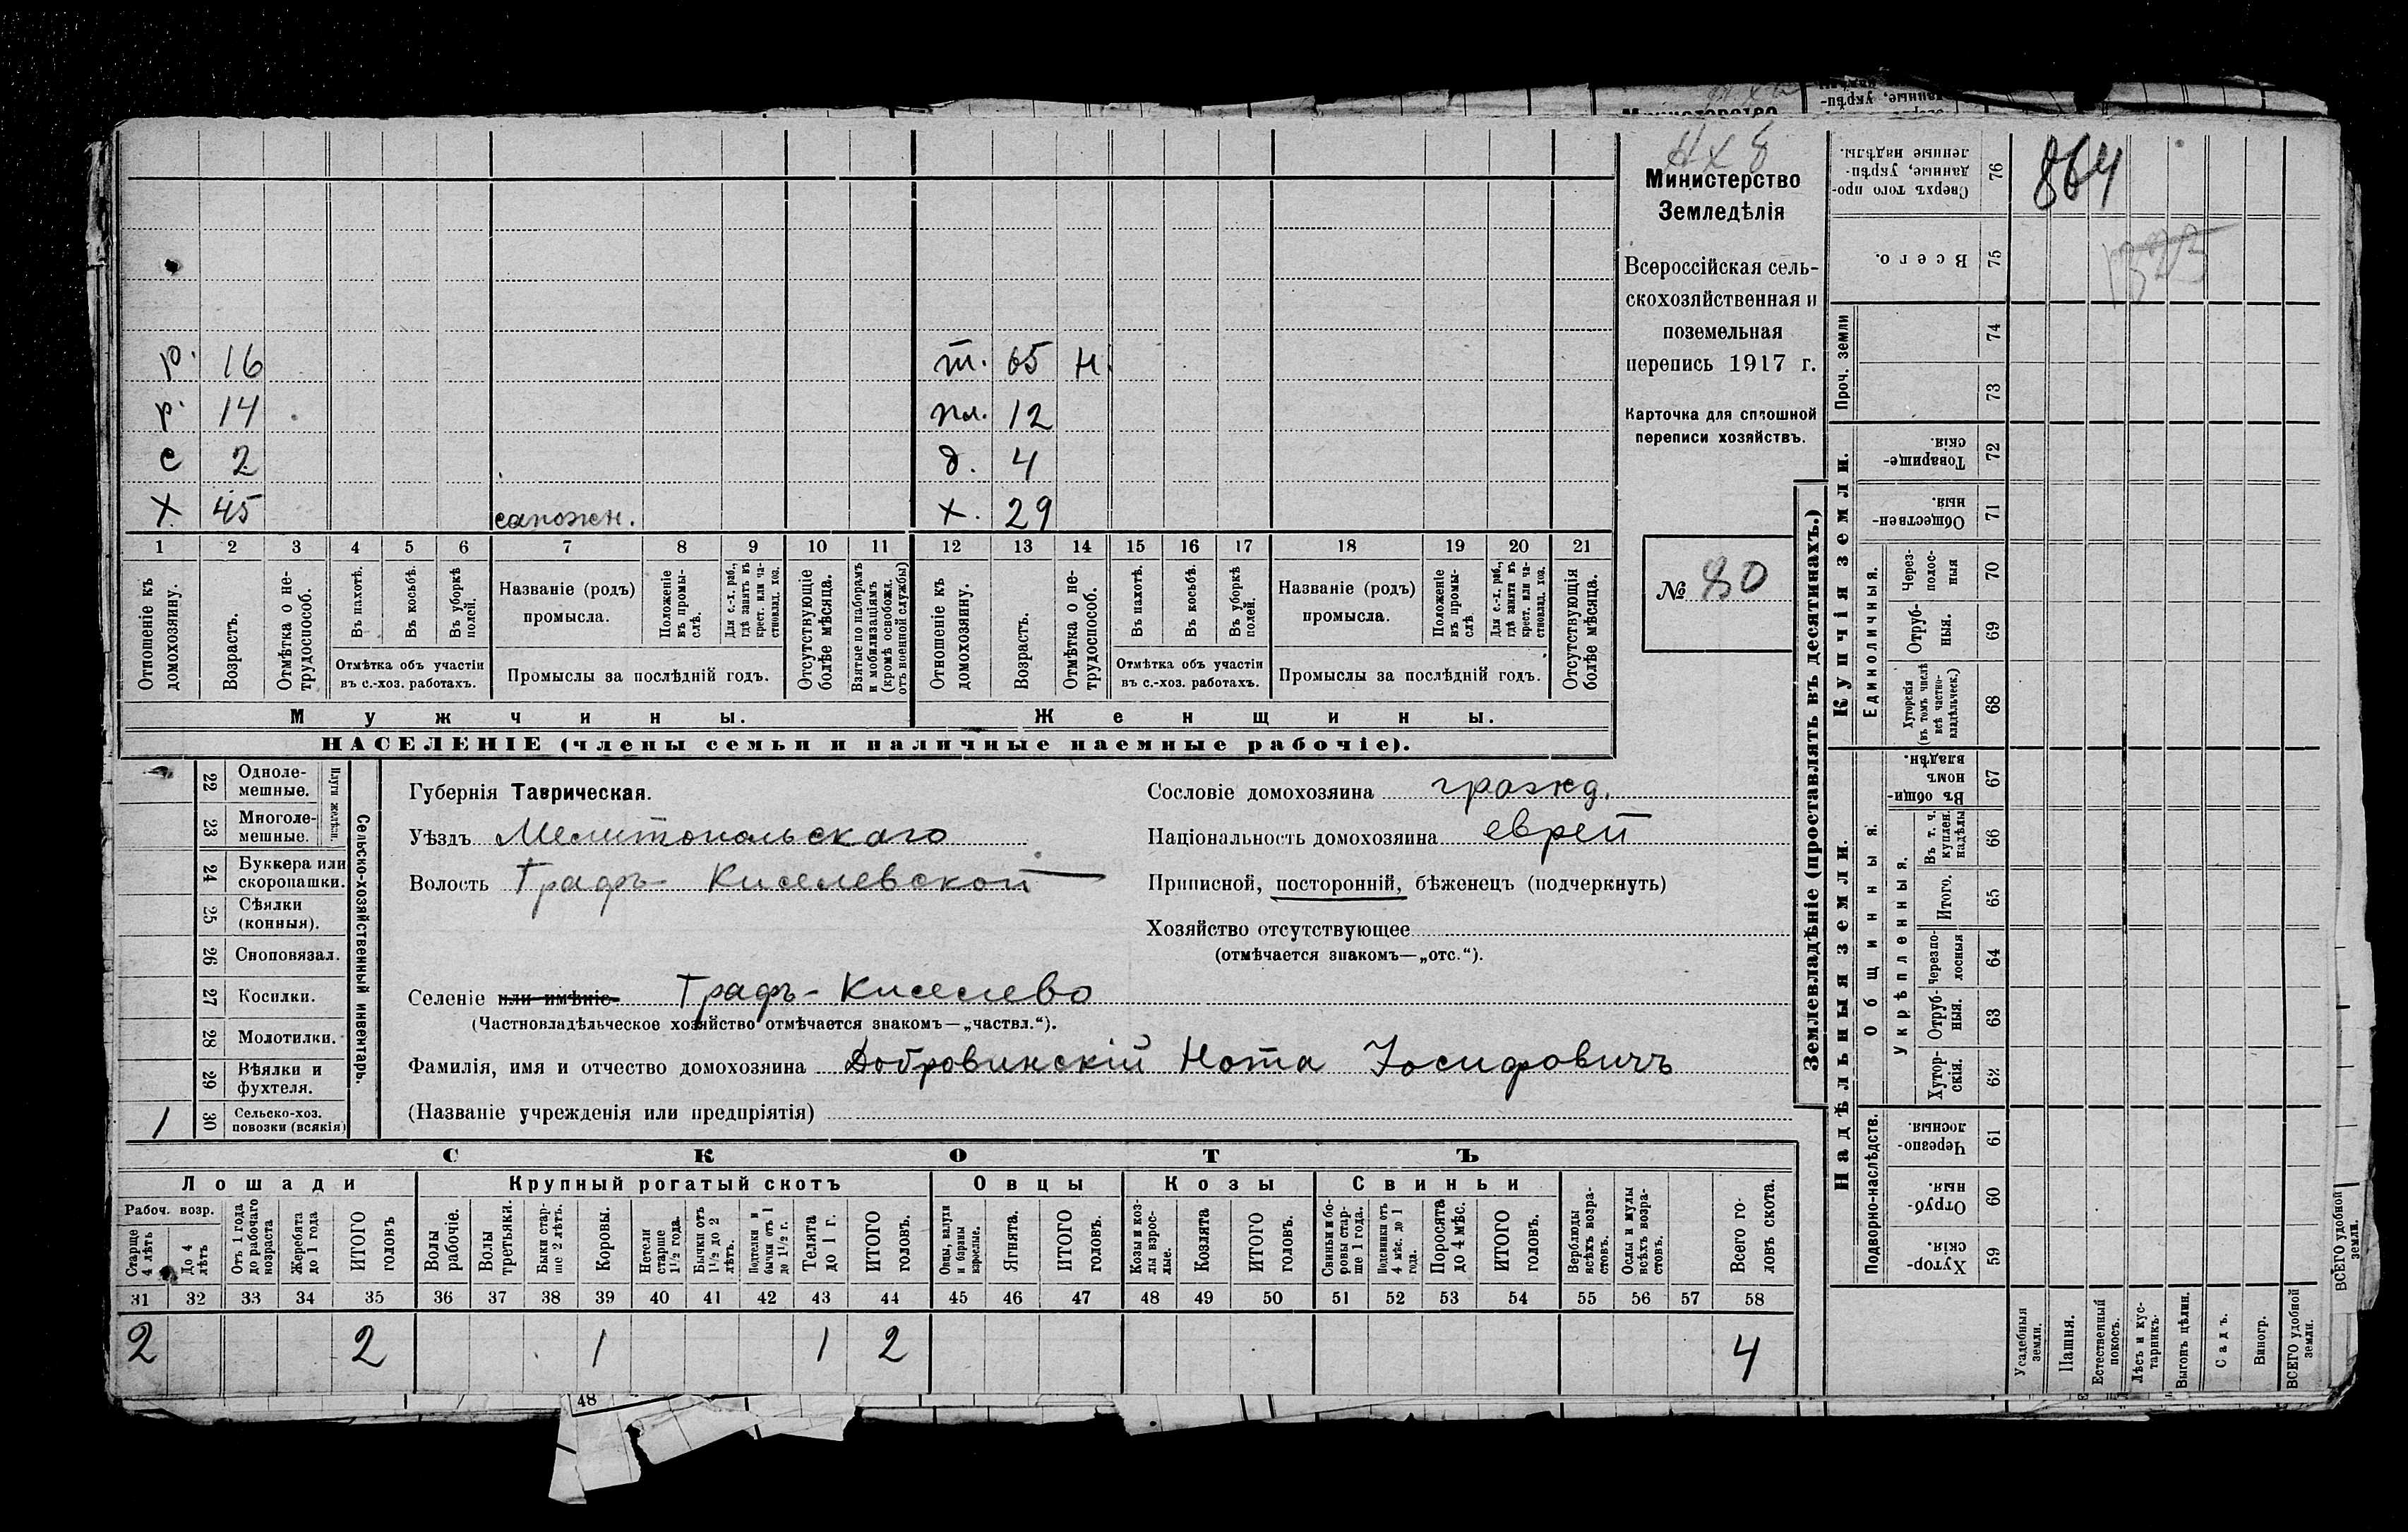 н х 8
Министерство
Земледѣлія
Всероссійская сель-
скохозяйственная и
поземельная
перепись 1917 г.
Карточка для сплошной
переписи хозяйствъ.
№ 80
р. 16 т. 65 н.
р. 14 пл. 12
с 2 д. 4
х 45 сапожн. х. 29
1 2 3 4 5 6 7 8 9 10 11 12 13 14 15 16 17 18 19 20 21
Отношеніе къ домохозяину.
Возрастъ.
Отмѣтка о не-трудоспособ.
Въ пахотѣ.
Въ косьбѣ.
Въ уборкѣ полей.
Отмѣтка объ участіи
въ с.-хоз. работахъ.
Названіе (родъ)
промысла.
Положеніе въ промы-слѣ.
Для с.-х. раб., гдѣ занятъ въ крест. или ча-стновлад. хоз.
Промыслы за послѣдній годъ.
Отсутствующіе болѣе мѣсяца.
Взятые по наборамъ и мобилизаціямъ (кромѣ освобожд. отъ военной службы)
Отношеніе къ домохозяину.
Возрастъ.
Отмѣтка о не-трудоспособ.
Въ пахотѣ.
Въ косьбѣ.
Въ уборкѣ полей.
Отмѣтка объ участіи
въ с.-хоз. работахъ.
Названіе (родъ)
промысла.
Положеніе въ промы-слѣ
Для с.-х. раб., гдѣ занята въ крест. или ча-стновлад. хоз.
Промыслы за послѣдній годъ.
Отсутствующія болѣе мѣсяца.
Мужчины. Женщины.
НАСЕЛЕНІЕ (члены семьи и наличные наемные рабочіе).
22 Одноле-мешные.
23 Многоле-мешные.
Плуги желѣзн.
24 Буккера или скоропашки.
25 Сѣялки (конныя).
26 Сноповязал.
27 Косилки.
28 Молотилки.
29 Вѣялки и фухтеля.
1 30 Сельско-хоз. повозки (всякія)
Сельско-хозяйственный инвентарь.
Губернія Таврическая.
Уѣздъ Мелитопольскаго
Волость Графъ-Киселевской
Селеніе или имѣніе Графъ-Киселево
(Частновладѣльческое хозяйство отмѣчается знакомъ—„частвл.“).
Фамилія, имя и отчество домохозяина Добровинскій Нота Іосифовичъ
(Названіе учрежденія или предпріятія)
Сословіе домохозяина гражд.
Національность домохозяина еврей
Приписной, посторонній, бѣженецъ (подчеркнуть)
Хозяйство отсутствующее
(отмѣчается знакомъ—„отс.“).
СКОТЪ
Лошади Крупный рогатый скотъ Овцы Козы Свиньи
Рабоч. возр.
Старше 4 лѣтъ
До 4 лѣтъ
Отъ 1 года до рабочаго возраста
Жеребята до 1 года
ИТОГО головъ
Волы рабочіе.
Волы третьяки.
Быки стар-ше 2 лѣтъ.
Коровы.
Нетели старше 1½ года.
Бычки отъ 1½ до 2 лѣтъ.
Подтелки и бычки отъ 1 до 1½ г.
Телята до 1 г.
ИТОГО головъ.
Овцы, валухи и бараны взрослые.
Ягнята.
ИТОГО головъ.
Козы и коз-лы взрос-лые.
Козлята
ИТОГО головъ.
Свиньи и бо-ровы стар-ше 1 года.
Подсвинки отъ 4 мѣс. до 1 года.
Поросята до 4 мѣс.
ИТОГО головъ.
Верблюды всѣхъ возра-стовъ.
Ослы и мулы всѣхъ возра-стовъ.
Всего го-ловъ скота.
31 32 33 34 35 36 37 38 39 40 41 42 43 44 45 46 47 48 49 50 51 52 53 54 55 56 57 58
2 2 1 1 2 4
Землевладѣніе (проставлять въ десятинахъ.)
Купчія земли.
Надѣльныя земли.
Проч. земли
Единоличныя.
Общинныя.
Укрѣпленныя.
Подворно-наслѣдств.
76 Сверхъ того про-данные, укрѣп-ленные надѣлы.
75 Всего.
74
73
72 Товарище-скія.
71 Обществен-ныя.
70 Через-полос-ныя
69 Отруб-ныя.
68 Хуторскія (въ томъ числѣ всѣ частно-владѣльческ.)
67 Въ общин-номъ владѣн.
66 Въ т. ч. куплен. надѣлы
65 Итого.
64 Черезпо-лосныя
63 Отруб-ныя.
62 Хутор-скія.
61 Черезпо-лосныя.
60 Отруб-ныя.
59 Хутор-скія.
864
1323
Усадебныя земли.
Пашня.
Естественный покосъ.
Лѣсъ и кус-тарникъ.
Выгонъ цѣлин.
Садъ.
Виногр.
ВСЕГО удобной земли.
ВСЕГО удобной земли.
48